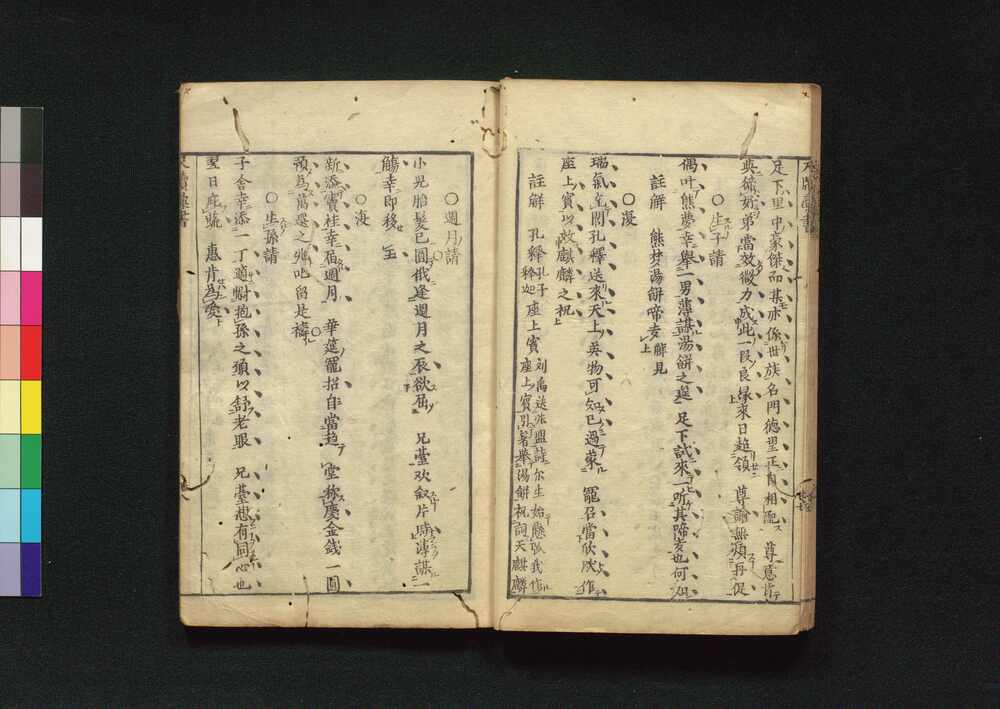 足下里中豪傑而某亦係世族名門德望正自相配 尊意肯
與嬌弟當效微力成此一段良緣來日趨領 尊諭無煩再促
○生子請
偶叶熊夢幸舉一男薄謀湯餅之筵 足下試來一听其啼声也何如
註解 熊梦湯餅啼声解見上
○復
瑞氣充閭孔釋送來天上英物可知已過蒙 寵召當欣欣作
座上賓以效麒麟之祝
註解 孔釋 孔子釋迦 座上賓 刘禹送張盟詩尓生始懸弧我作座上賓引箸舉湯餅祝詞天麒麟
○週月請
小兒胎髮已圓俄逢週月之辰欲屈 兄臺欢叙片時薄謀一
觴幸即移 玉
○復
新添寶桂幸届週月 華筵寵招自當趋 堂称慶金銭一圓
預為萬選之兆叱留是禱
○生孫請
子舍幸添一丁適對抱孫之願以舒老眼 兄臺想有同心也
翌日庭蔬 惠肯為愛